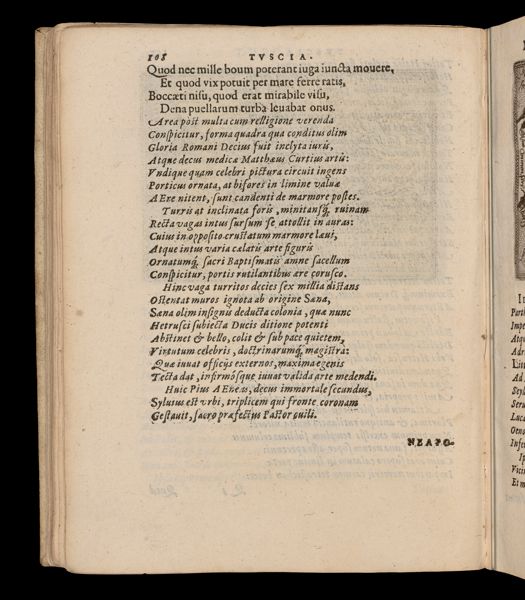 108 TVSCIA.
Quod nec mille boum poterant iuga iuncta mouere,
Et quod vix potuit per mare ferre ratis,
Boccæti nisu, quod erat mirabile visu,
Dena puellarum turba leuabat onus.
Area pòst multa cum relligione verenda
Conspicitur, forma quadra qua conditus olim
Gloria Romani Decius fuit inclyta iuris,
Atque decus medicæ Matthæus Curtius artis:
Vndique quam celebri pictura circuit ingens
Porticus ornata, at bifores in limine valuæ
Aere nitent, sunt candenti de marmore postes.
Turris at inclinata foris, minitansq́; ruinam
Recta vagas intus sursum se attollit in auras:
Cuius in opposito crustatum marmore laui,
Atque intus varia cælatis arte figuris
Ornatumq́; sacri Baptismatis amne sacellum
Conspicitur, portis rutilantibus ære corusco.
Hinc vaga turritos decies sex millia distans
Ostentat muros ignota ab origine Sæna,
Sæna olim insignis deducta colonia, quæ nunc
Hetrusci subiecta Ducis ditione potenti
Abstinet & bello, colit & sub pace quietem,
Virtutum celebris, doctrinarumq́; magistra:
Quæ iuuat officijs externos, maxima egenis
Tecta dat, infirmósque iuuat valida arte medendi.
Huic Pius Aeneas, decus immortale secundus,
Syluius est vrbi, triplicem qui fronte coronam
Gestauit, sacro præfectus Pastor ouili.
NEAPO-